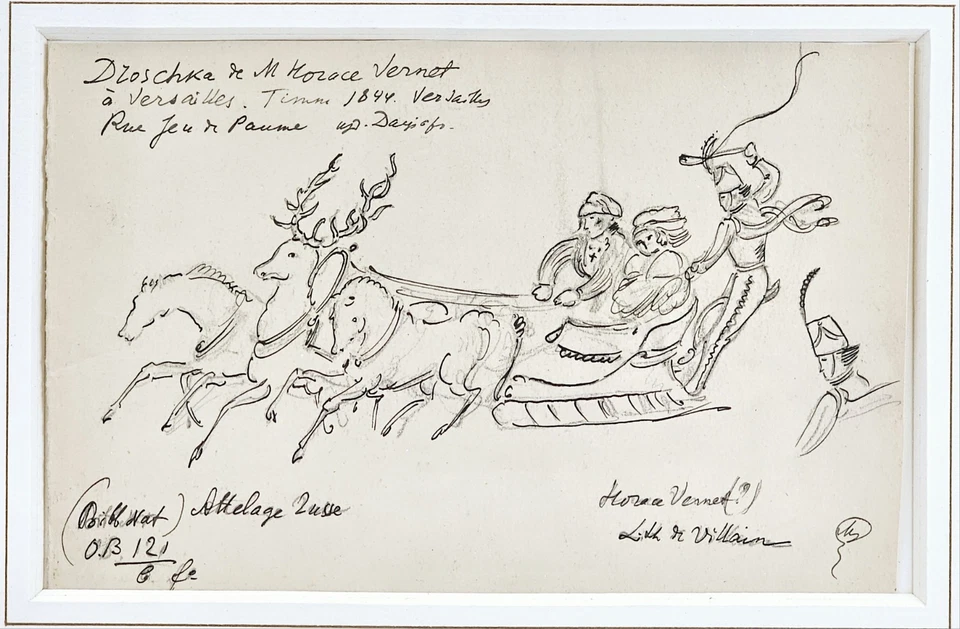 Droschka de M Horace Vernet
à Versailles. Timm 1844. Versailles
Rue Jeu de Paume
(Bibl Nat) Attelage Russe
O.B 121
6 fo
Horace Vernet(?)
Lith de Villain